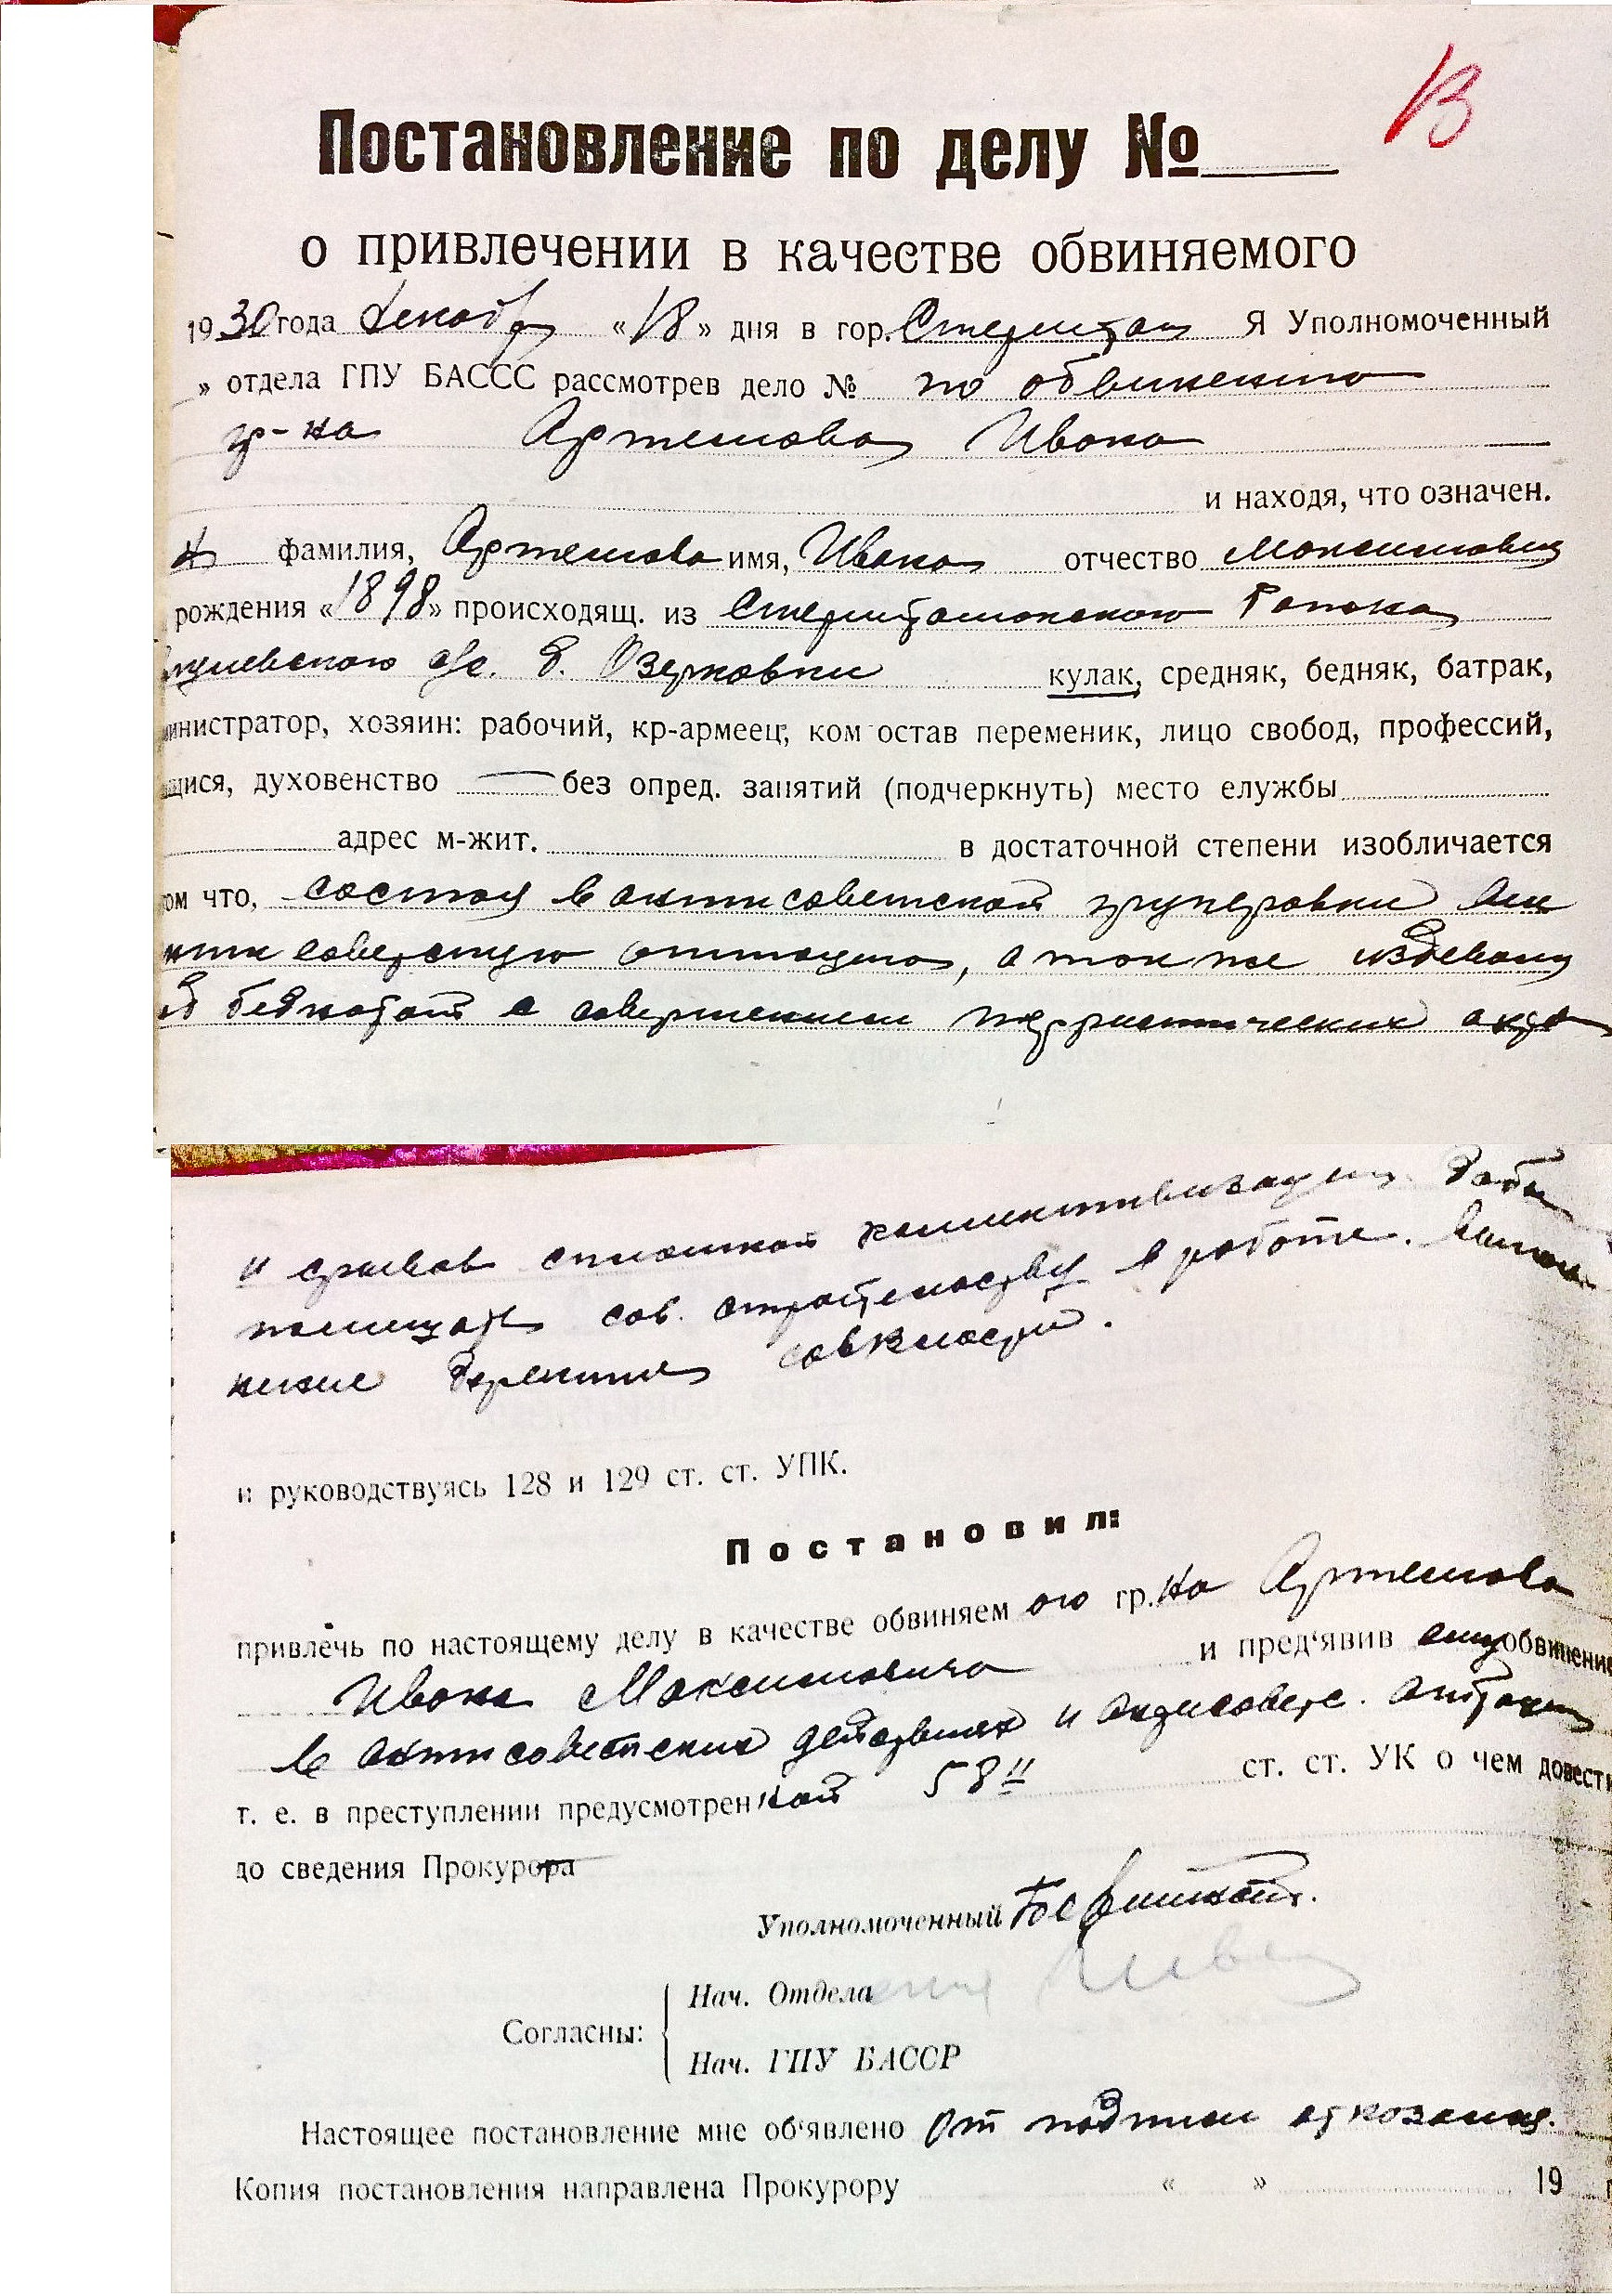 13
Постановление по делу №
о привлечении в качестве обвиняемого
1930 года декабря «18» дня в гор. Стерлитам Я Уполномоченный
» отдела ГПУ БАССС рассмотрев дело № по обвинению
гр-на Артемова Ивана
и находя, что означен.
фамилия, Артемова имя, Ивана отчество Максимович
рождения «1898» происходящ. из Стерлитамакского
с/с. д. Озерковки кулак, средняк, бедняк, батрак,
министратор, хозяин: рабочий, кр-армеец, ком остав переменик, лицо свобод, профессий,
щися, духовенство — без опред. занятий (подчеркнуть) место елужбы
адрес м-жит. в достаточной степени изобличается
ом что, состоя в антисоветской групировки вел
анти советскую агитацию, а так же издевалия
над беднотой с совершением террористических акто
и срывов сплошной коллективизации, дабы
помешать сов. строительству в работе.
соввласти.
и руководствуясь 128 и 129 ст. ст. УПК.
Постановил:
привлечь по настоящему делу в качестве обвиняем ого гр. на Артемова
Ивана Максимовича и пред'явив ему обвинение
в антисоветских действиях и антисоветс.
т. е. в преступлении предусмотрен ной 58 ст. ст. УК о чем довести
до сведения Прокурора
Уполномоченный
Нач. Отдела
Согласны:
Нач. ГПУ БАССР
Настоящее постановление мне об'явлено от подписи отказался.
Копия постановления направлена Прокурору « » 19 г